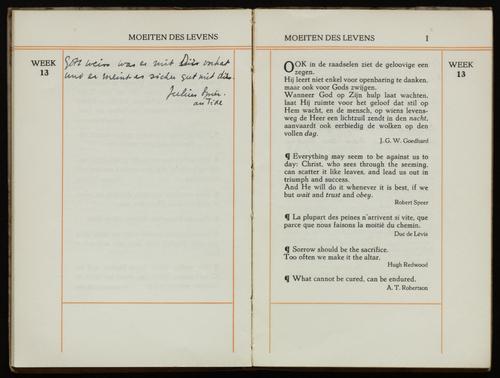 MOEITEN DES LEVENS
WEEK
13
Gott weiss was er mit Dir vorhat
und er meint es sicher gut mit dir.
Julius
MOEITEN DES LEVENS I
WEEK
13
OOK in de raadselen ziet de geloovige een
zegen.
Hij leert niet enkel voor openbaring te danken,
maar ook voor Gods zwijgen.
Wanneer God op Zijn hulp laat wachten,
laat Hij ruimte voor het geloof dat stil op
Hem wacht, en de mensch, op wiens levens-
weg de Heer een lichtzuil zendt in den nacht,
aanvaardt ook eerbiedig de wolken op den
vollen dag.
J. G. W. Goedhard
¶ Everything may seem to be against us to
day: Christ, who sees through the seeming,
can scatter it like leaves, and lead us out in
triumph and success.
And He will do it whenever it is best, if we
but wait and trust and obey.
Robert Speer
¶ La plupart des peines n'arrivent si vite, que
parce que nous faisons la moitié du chemin.
Duc de Lévis
¶ Sorrow should be the sacrifice.
Too often we make it the altar.
Hugh Redwood
¶ What cannot be cured, can be endured.
A. T. Robertson